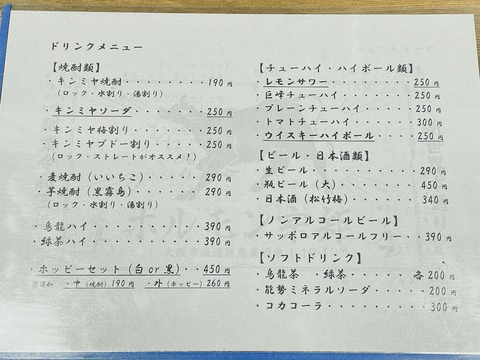 ドリンクメニュー
【焼酎類】
・キンミヤ焼酎・・・・・・・・190円
(ロック・水割り・湯割り)
・キンミヤソーダ・・・・・・・250円
・キンミヤ梅割り・・・・・・・250円
・キンミヤブドー割り・・・・・250円
(ロック・ストレートがオススメ!)
・麦焼酎(いいちこ)・・・・・290円
・芋焼酎(黒霧島)・・・・・・290円
(ロック・水割り・湯割り)
・烏龍ハイ・・・・・・・・・・390円
・緑茶ハイ・・・・・・・・・・390円
ホッピーセット(白or黒)・・450円
※追加 ・中(焼酎)190円 ・外(ホッピー)260円
【チューハイ・ハイボール類】
・レモンサワー・・・・・・・・250円
・巨峰チューハイ・・・・・・・250円
・プレーンチューハイ・・・・・250円
・トマトチューハイ・・・・・・300円
・ウイスキーハイボール・・・・250円
【ビール・日本酒類】
・生ビール・・・・・・・・・・290円
・瓶ビール(大)・・・・・・・450円
・日本酒(松竹梅)・・・・・・340円
【ノンアルコールビール】
・サッポロアルコールフリー・・390円
【ソフトドリンク】
・烏龍茶 ・緑茶・・・・・各200円
・能勢ミネラルソーダ・・・・・200円
・コカコーラ・・・・・・・・・300円